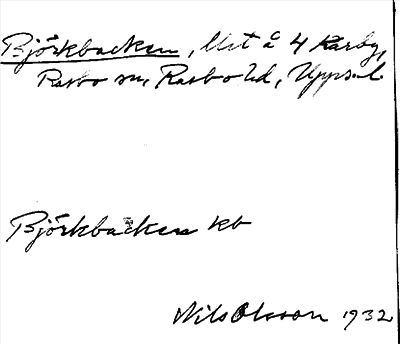 Björkbacken, lht å 4 Karby,
Rasbo sn, Rasbo hd, Upps. l.
Björkbacken kb
Nils Olsson 1932